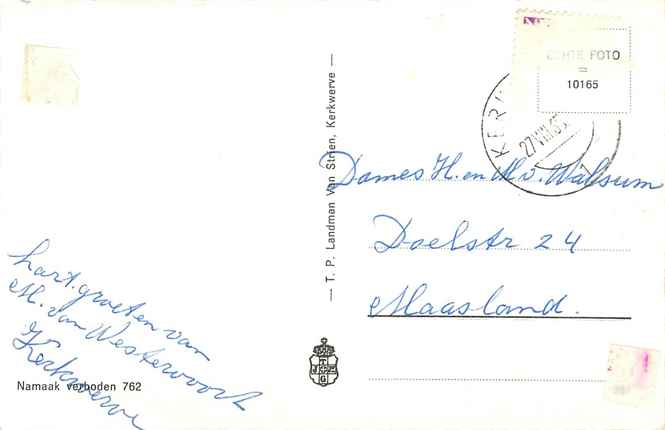 hart. groeten van
M. van Westervoort
Kerkwerve
Namaak verboden 762
— T. P. Landman Van Strien, Kerkwerve —
ECHTE FOTO
=
10165
KERK
27 VIII
Dames H. en M v. Walsum
Doelstr 24
Maasland.